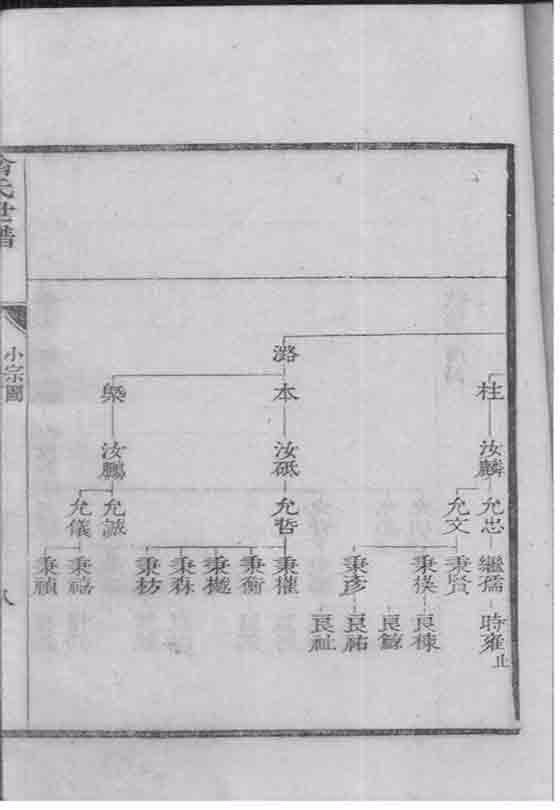 柱
汝麟
允忠
允文
繼孺
時雍止
秉賢
秉彥
良棟
良祐
良祉
潞
本
汝砥
允哲
秉權
秉衡
秉樾
秉森
秉枋
汝鵬
允誠
允儀
秉禧
秉禎
氏世譜
小宗圖
八